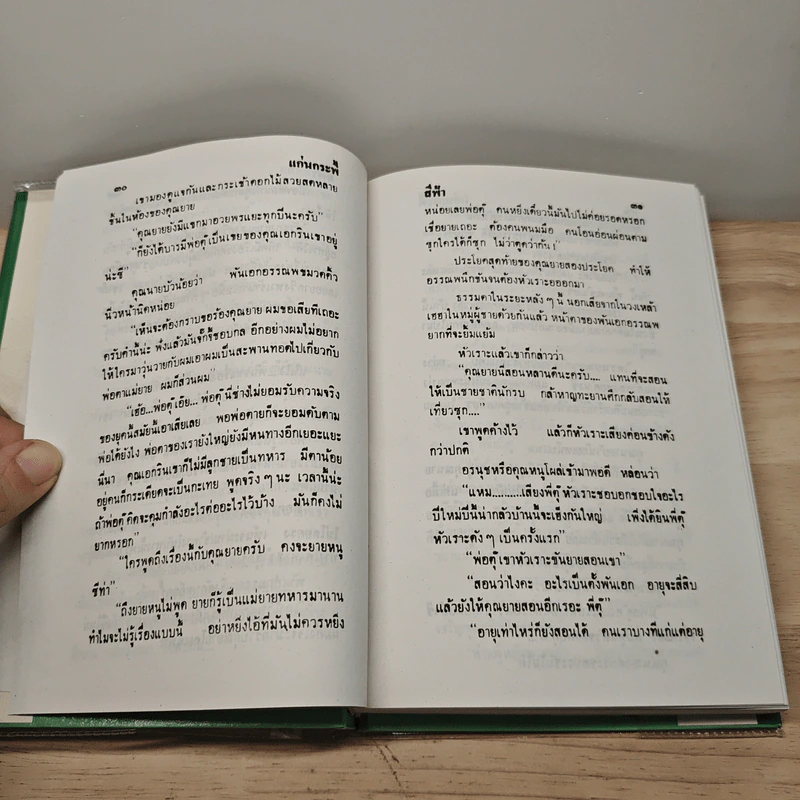 ๓๐
แก่นกระพี้
เขามองดูแจกันและกระเช้าดอกไม้สวยสดหลาย
ชั้นในห้องของคุณยาย
"คุณยายยังมีแขกมาอวยพรแยะทุกปีนะครับ"
"ก็ยังได้บารมีพ่อตุ๊เป็นเขยของคุณเอกรินเขาอยู่
น่ะซี"
คุณนายบัวน้อยว่า พันเอกอรรณพขมวดคิ้ว
นิ่วหน้านิดหน่อย
"เห็นจะต้องกราบขอร้องคุณยาย ผมขอเสียทีเถอะ
ครับคำนี้น่ะ ฟังแล้วมันจั๊กจี้ชอบกล อีกอย่างผมไม่อยาก
ให้ใครมาวุ่นวายกับผมเอาผมเป็นสะพานทอดไปเกี่ยวกับ
พ่อตาแม่ยาย ผมก็ส่วนผม"
"เฮ้อ...พ่อตุ๊เอ๊ย... พ่อตุ๊นี่ช่างไม่ยอมรับความจริง
ของยุคนี้สมัยนี้เอาเสียเลย พอพ่อตายก็จะยอมดับตาม
พ่อได้ยังไง พ่อตาของเรายังใหญ่ยังมีหนทางอีกเยอะแยะ
นี่นา คุณเอกรินเขาก็ไม่มีลูกชายเป็นทหาร มีตาน้อย
อยู่คนก็กระเดียดจะเป็นกะเทย พูดจริง ๆ นะ เวลานี้น่ะ
ถ้าพ่อตุ๊คิดจะคุมกำลังอะไรต่ออะไรไว้บ้าง มันก็คงไม่
ยากหรอก"
"ใครพูดถึงเรื่องนี้กับคุณยายครับ คงจะยายหนู
ซีท่า"
"ถึงยายหนูไม่พูด ยายก็รู้เป็นแม่ยายทหารมานาน
ทำไมจะไม่รู้เรื่องแบบนี้ อย่าหยิ่งไอ้ที่มันไม่ควรหยิ่ง
สีฟ้า
๓๑
หน่อยเลยพ่อตุ๊ คนหยิ่งเดี๋ยวนี้มันไปไม่ค่อยรอดหรอก
เชื่อยายเถอะ ต้องคนพนมมือ คนโอนอ่อนผ่อนตาม
ซุกใครได้ก็ซุก ไม่ว่าดูดีกว่ากัน!"
ประโยคสุดท้ายของคุณยายสองประโยค ทำให้
อรรณพนึกขันจนต้องหัวเราะออกมา
ธรรมดาในระยะหลัง ๆ นี้ นอกเสียจากในวงเหล้า
เฮฮาในหมู่ผู้ชายด้วยกันแล้ว หน้าตาของพันเอกอรรณพ
ยากที่จะยิ้มแย้ม
หัวเราะแล้วเขาก็กล่าวว่า
"คุณยายนี่สอนหลานดีนะครับ.... แทนที่จะสอน
ให้เป็นชายชาตินักรบ กล้าหาญทะยานศึกกลับสอนให้
เที่ยวซุก...."
เขาพูดค้างไว้ แล้วก็หัวเราะเสียงค่อนข้างดัง
กว่าปกติ
อรนุชหรือคุณหนูโผล่เข้ามาพอดี หล่อนว่า
"แหม..........เสียงพี่ตุ๊หัวเราะชอบอกชอบใจอะไร
ปีใหม่ปีนี้น่ากลัวบ้านนี้จะเฮ็งกันใหญ่ เพิ่งได้ยินพี่ตุ๊
หัวเราะดัง ๆ เป็นครั้งแรก"
"พ่อตุ๊เขาหัวเราะขันยายสอนเขา"
"สอนว่าไงคะ อะไรเป็นตั้งพันเอก อายุจะสี่สิบ
แล้วยังให้คุณยายสอนอีกเรอะ พี่ตุ๊"
"อายุเท่าไหร่ก็ยังสอนได้ คนเราบางทีแก่แต่อายุ